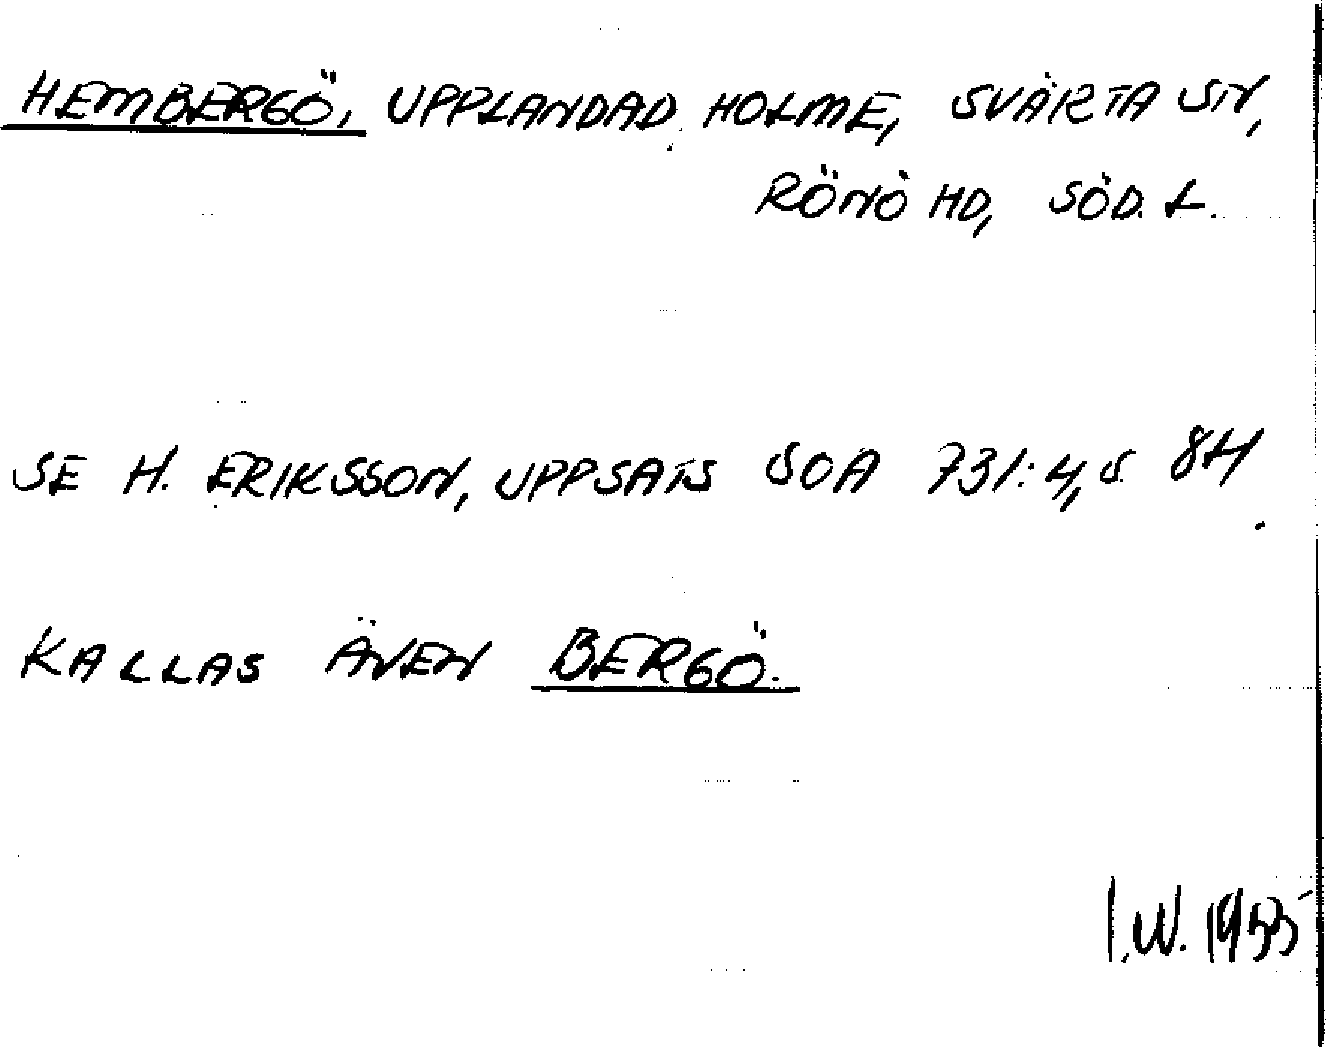 HEMBERGÖ, UPPLANDAD HOLME, SVÄRTA SN,
RÖNÖ HD, SÖD. L.
SE H. ERIKSSON, UPPSATS SOA 731:4, S. 84.
KALLAS ÄVEN BERGÖ.
I.W. 1955